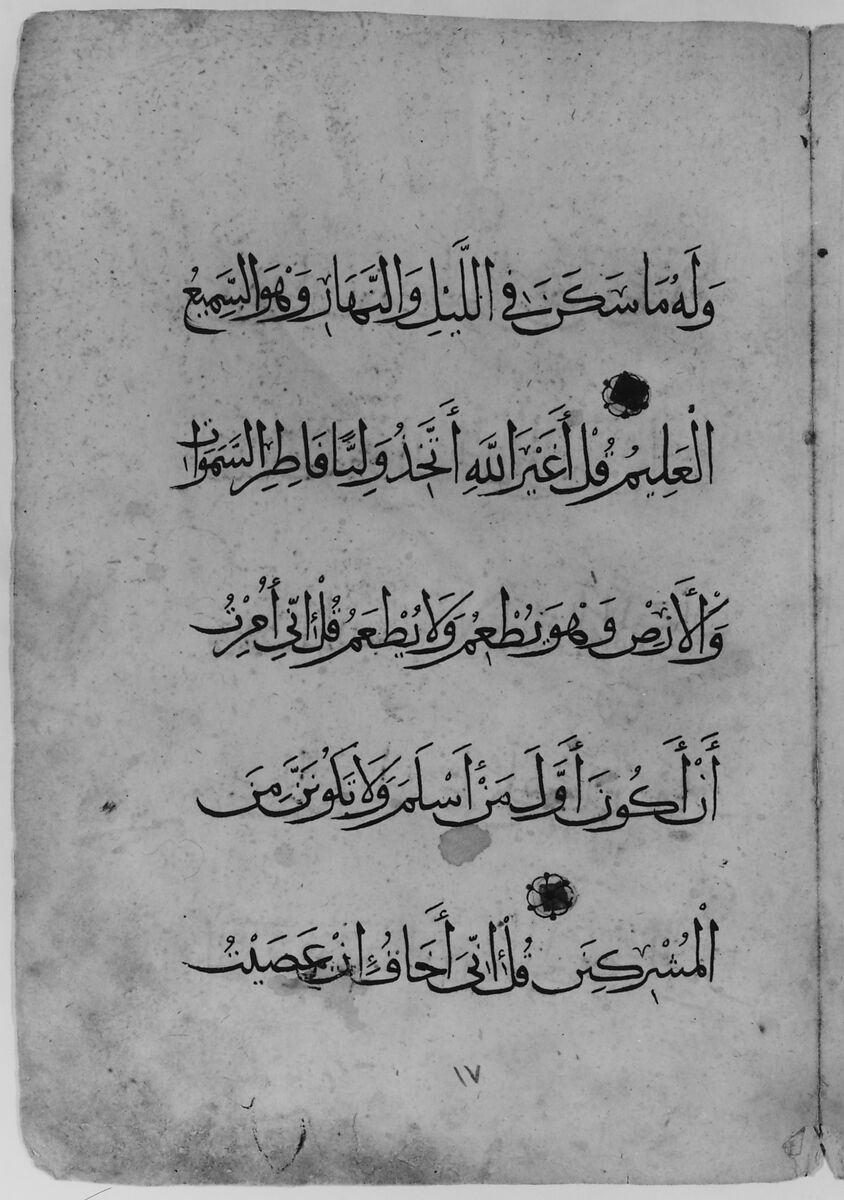 وَلَهُ مَا سَكَنَ فِي اللَّيْلِ وَالنَّهَارِ وَهْوَ السَّمِيعُ
الْعَلِيمُ قُلْ أَغَيْرَ اللَّهِ أَتَّخِذُ وَلِيًّا فَاطِرِ السَّمَوَاتِ
وَالْأَرْضِ وَهْوَ يُطْعِمُ وَلَا يُطْعَمُ قُلْ إِنِّي أُمِرْتُ
أَنْ أَكُونَ أَوَّلَ مَنْ أَسْلَمَ وَلَا تَكُونَنَّ مِنَ
الْمُشْرِكِينَ قُلْ إِنِّيَ أَخَافُ إِنْ عَصَيْتُ
١٧